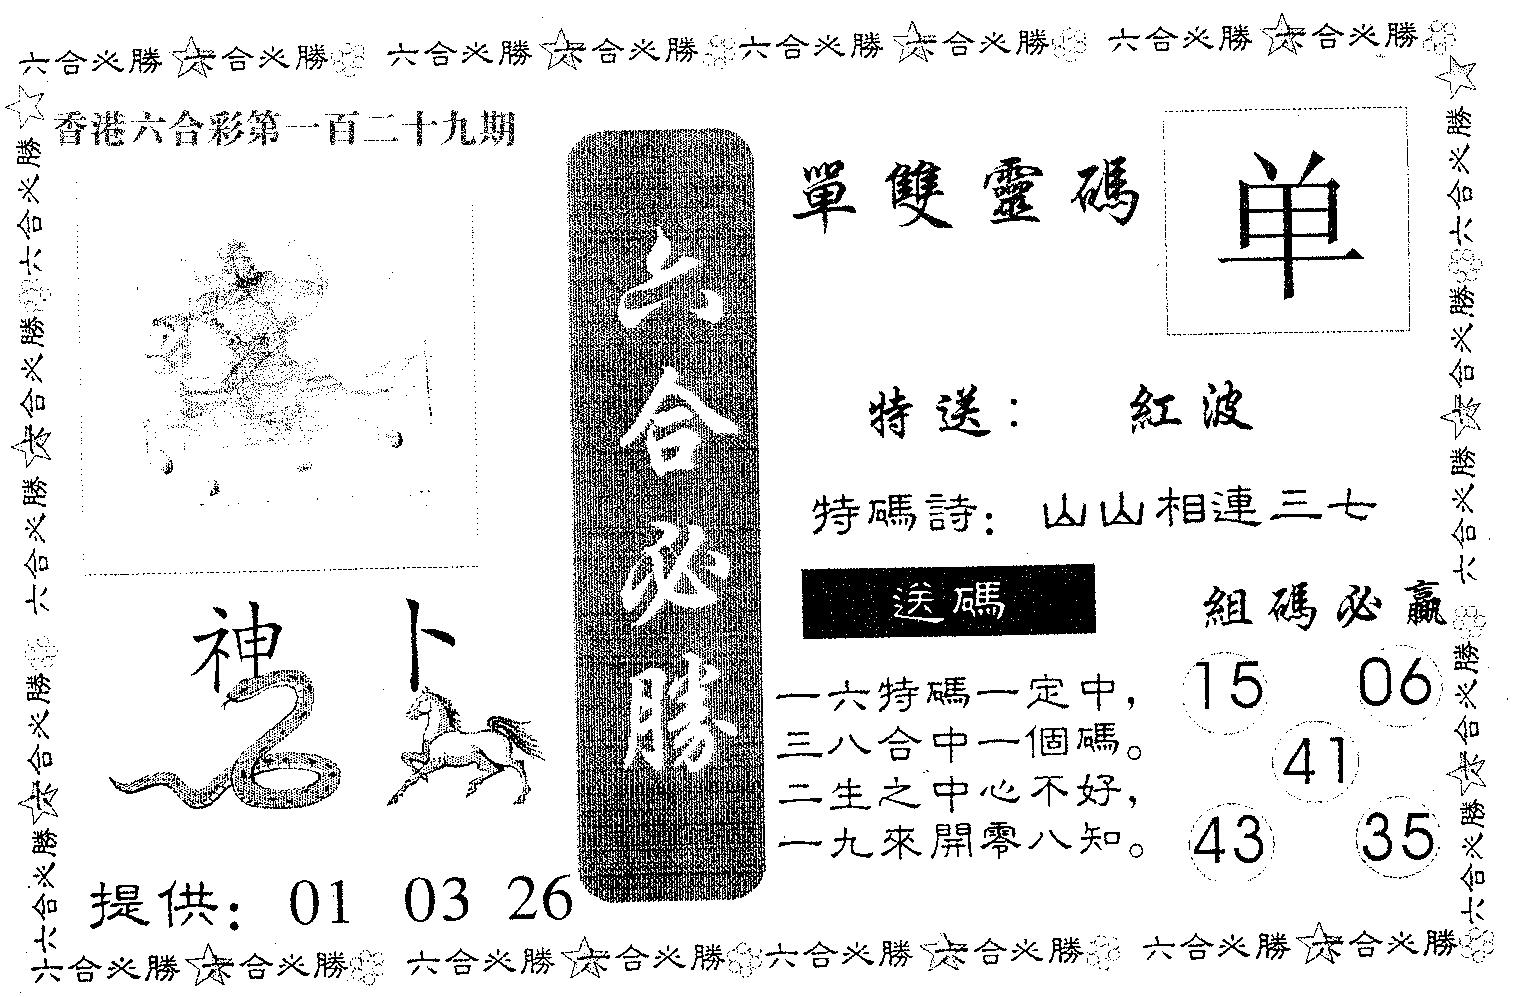 六合必勝六合必勝 六合必勝六合必勝 六合必勝六合必勝 六合必勝六合必勝
香港六合彩第一百二十九期
六合必勝
單雙靈碼 单
特送： 紅波
特碼詩：山山相連三七
送碼
組碼必贏
一六特碼一定中，
三八合中一個碼。
二生之中心不好，
一九來開零八知。
15 06
41
43 35
神 卜
提供：01 03 26
六合必勝六合必勝六合必勝六合必勝六合必勝六合必勝
六合必勝六合必勝六合必勝六合必勝六合必勝六合必勝
六合必勝六合必勝 六合必勝六合必勝 六合必勝六合必勝 六合必勝六合必勝